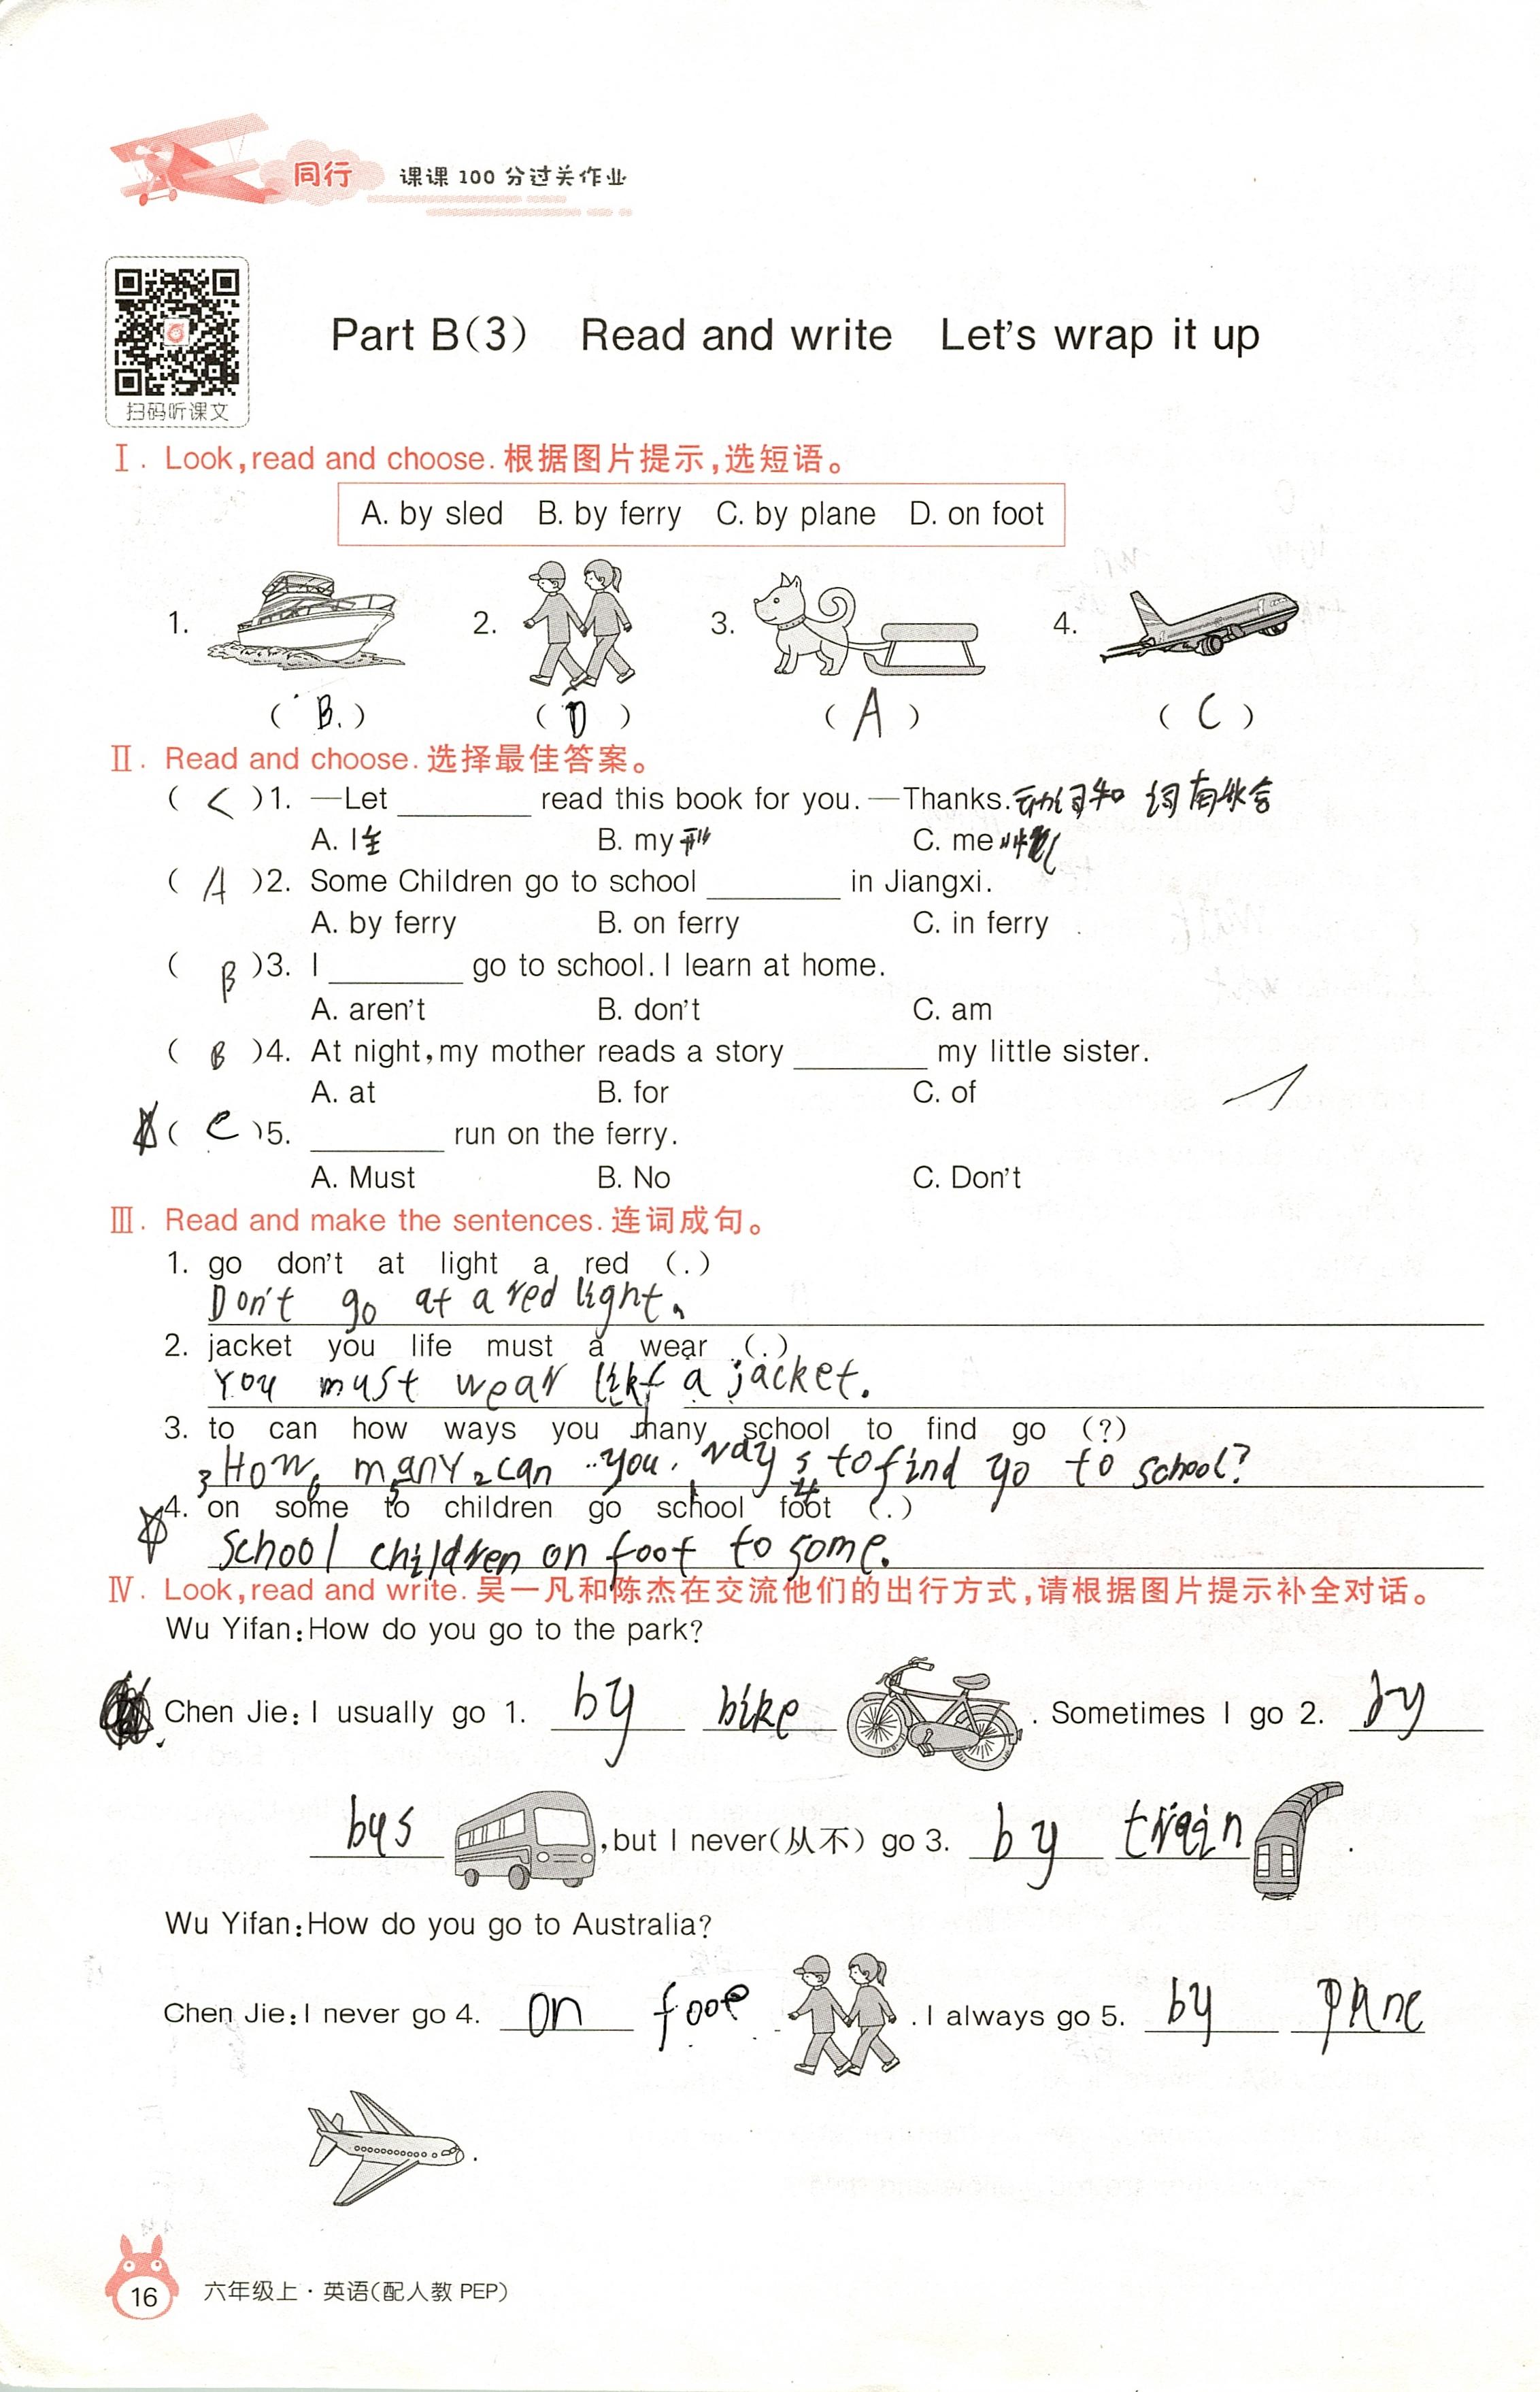 同行 课课100分过关作业
扫码听课文
Part B(3) Read and write Let's wrap it up
Ⅰ. Look, read and choose. 根据图片提示，选短语。
A. by sled B. by ferry C. by plane D. on foot
1. 2. 3. 4.
( B. ) ( D ) ( A ) ( C )
Ⅱ. Read and choose. 选择最佳答案。
( C )1. —Let ________ read this book for you. —Thanks.
A. I主 B. my形 C. me
( A )2. Some Children go to school ________ in Jiangxi.
A. by ferry B. on ferry C. in ferry
( B )3. I ________ go to school. I learn at home.
A. aren't B. don't C. am
( B )4. At night, my mother reads a story ________ my little sister.
A. at B. for C. of
☆( C )5. ________ run on the ferry.
A. Must B. No C. Don't
Ⅲ. Read and make the sentences. 连词成句。
1. go don't at light a red (.)
Don't go at a red light.
2. jacket you life must a wear (.)
You must wear likf a jacket.
3. to can how ways you many school to find go (?)
How many can you ways to find go to school?
☆4. on some to children go school foot (.)
School children on foot to some.
Ⅳ. Look, read and write. 吴一凡和陈杰在交流他们的出行方式，请根据图片提示补全对话。
Wu Yifan: How do you go to the park?
Chen Jie: I usually go 1. by bike . Sometimes I go 2. by
bus , but I never(从不) go 3. by train .
Wu Yifan: How do you go to Australia?
Chen Jie: I never go 4. on foot . I always go 5. by plane
.
16 六年级上·英语(配人教 PEP)